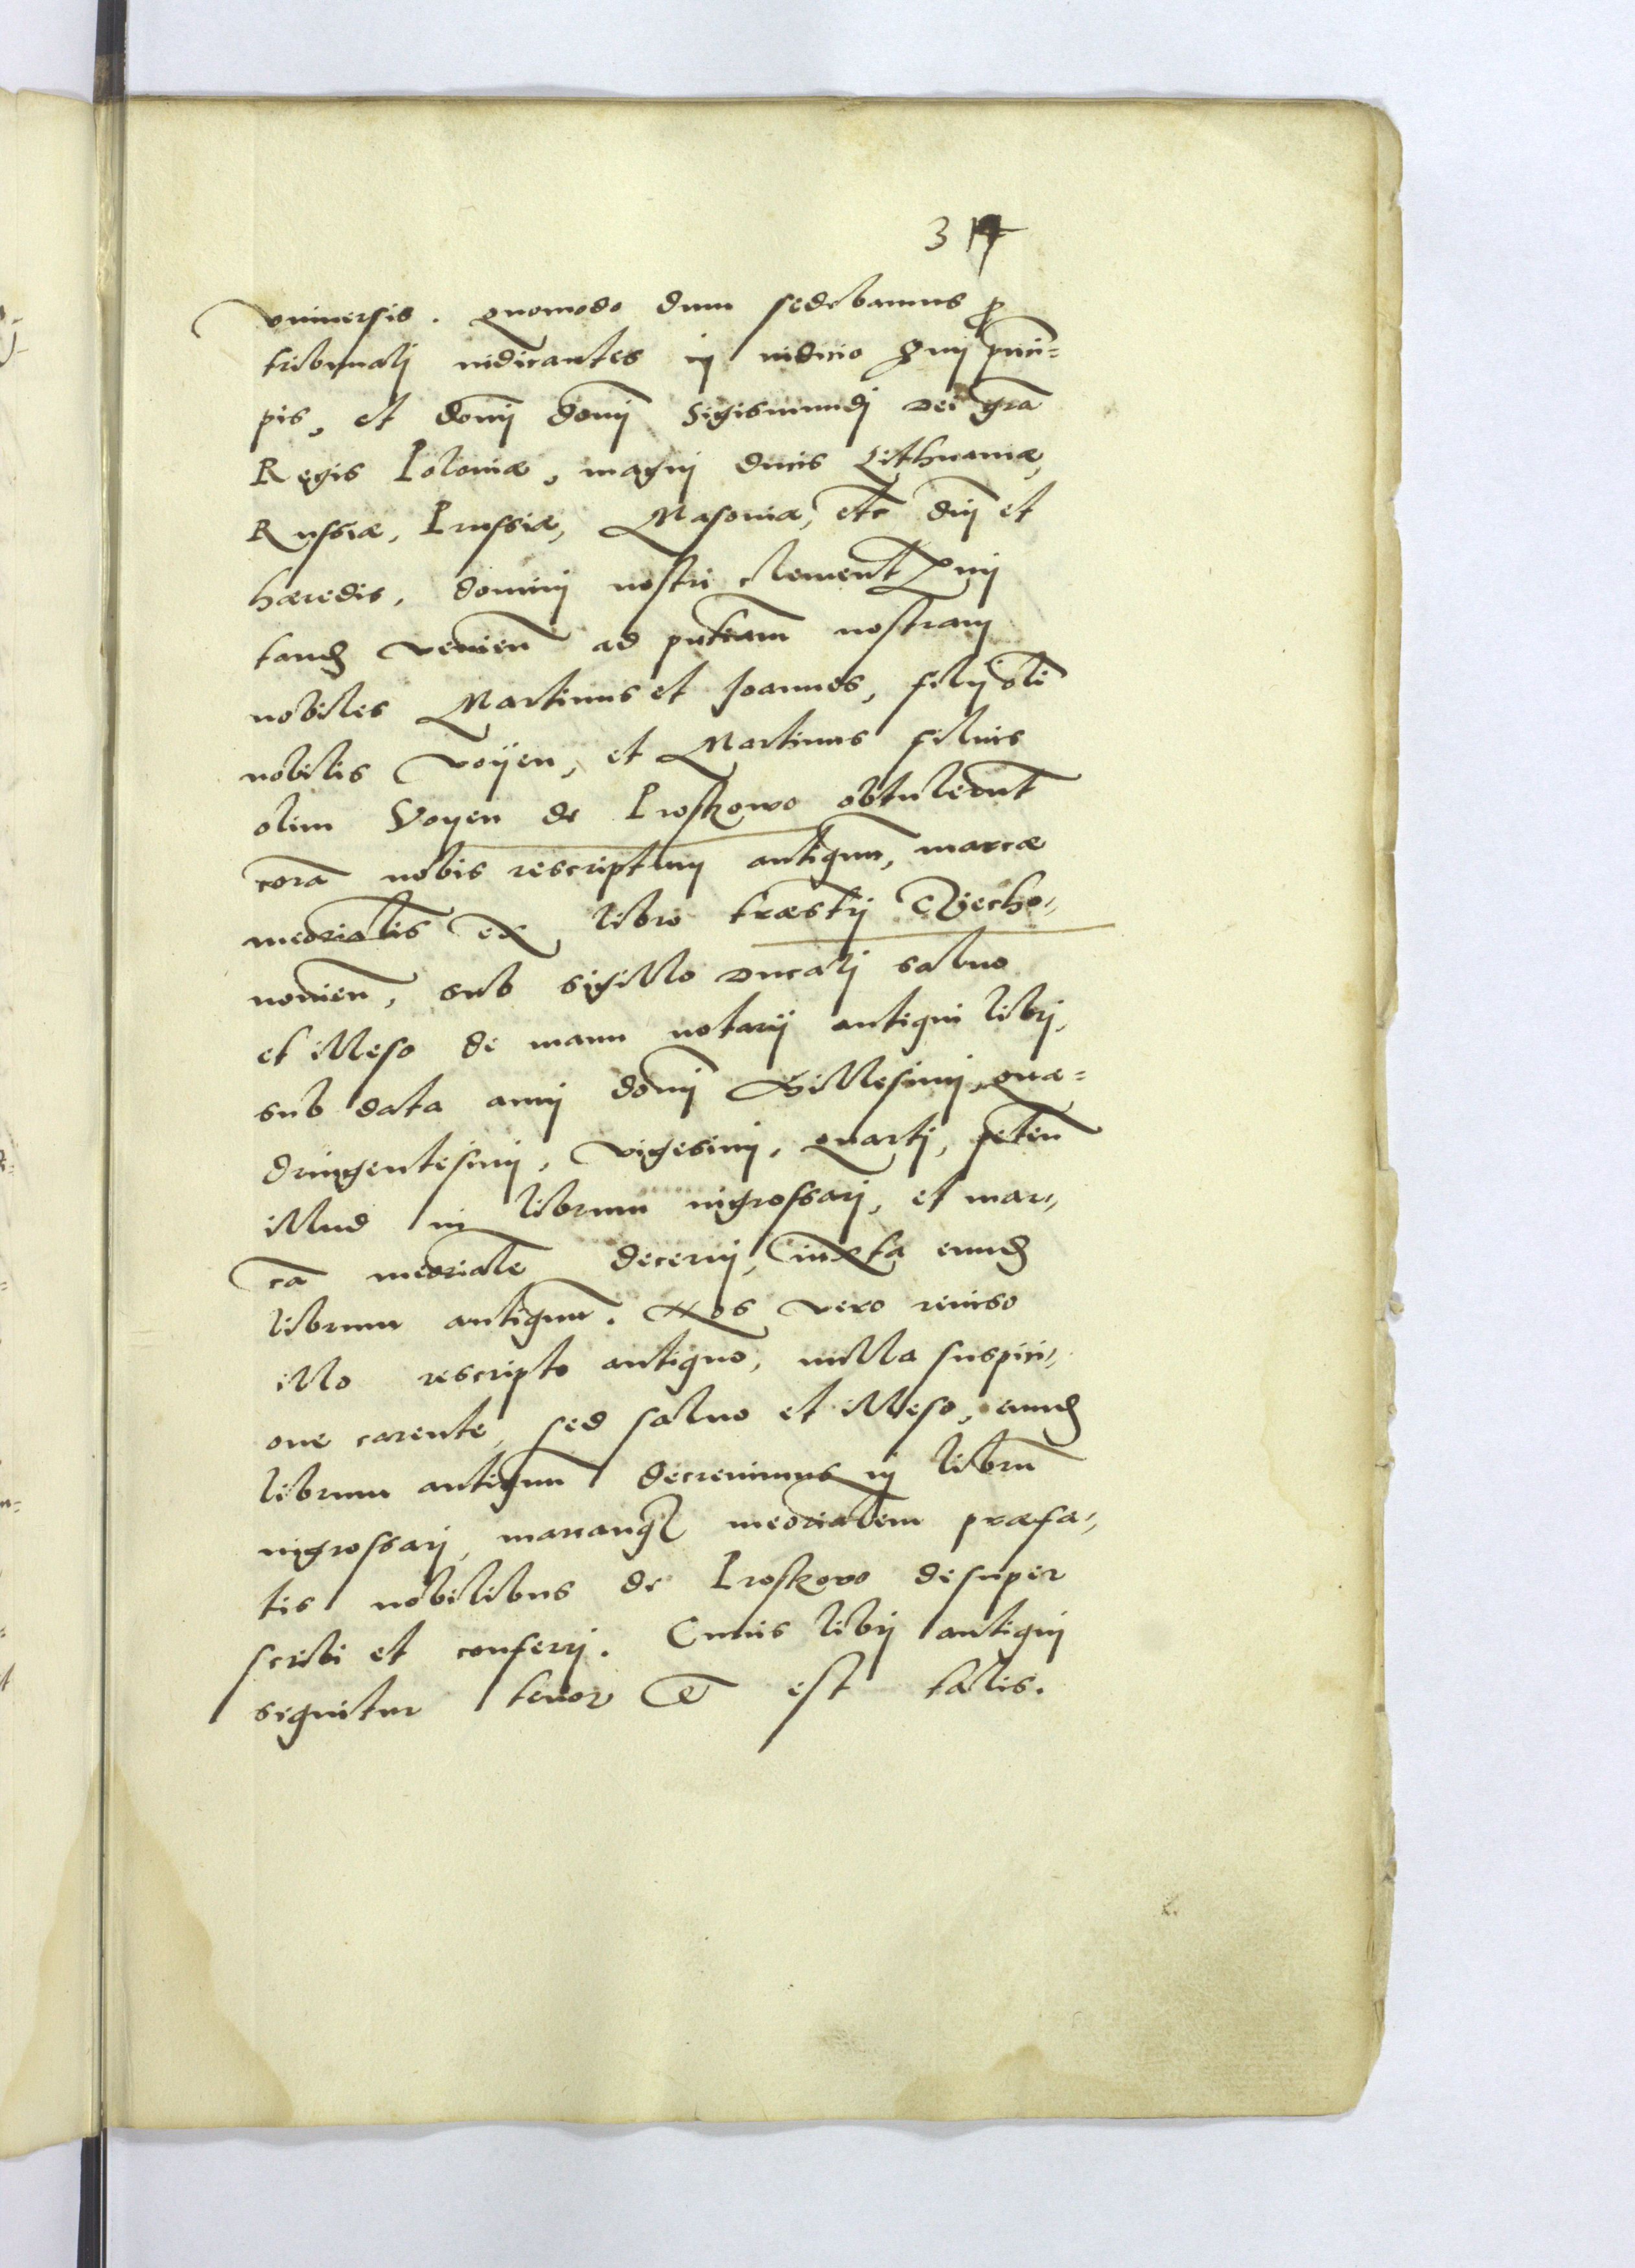 universis. quomodo dum sedebamus p
tribunalj iudicantes in iudicio Smi princi=
pis, et domj domj Sigismundj Dei gra
Regis Poloniæ, magnj ducis Lithuaniæ,
Russiæ, Prussiæ, Masoviæ, etc dnj et
hæredis, dominj nostri clement
tand venien ad pntiam nostram
nobiles Martinus et Joannes, filij oli
nobilis Voÿen, et Martinus filius
olim Voyen de Proskowo obtulerunt
cora nobis rescriptum antiquu, marcæ
meorialis ex libro terrestrj
novien, sub sigillo Ducalj salvo
et illeso de manu notarij antiqui librj,
sub data annj domj Millesimj, qua=
dringentesimj, vigesimj, quartj, peten
illud in librum ingrossarj, et mar,,
ca meoriale decernj, iuxta eund
librum antiquu. Nos vero reviso
illo rescripto antiquo, nulla suspici,,
one carente, sed salvo et illeso, eund
librum antiquu decrevimus in libru
ingrossarj, marcamq meorialem præfa,,
tis nobilibus de Proskowo desuper
scribi et conferrj. Cuius librj antiquj
sequitur tenor est talis.